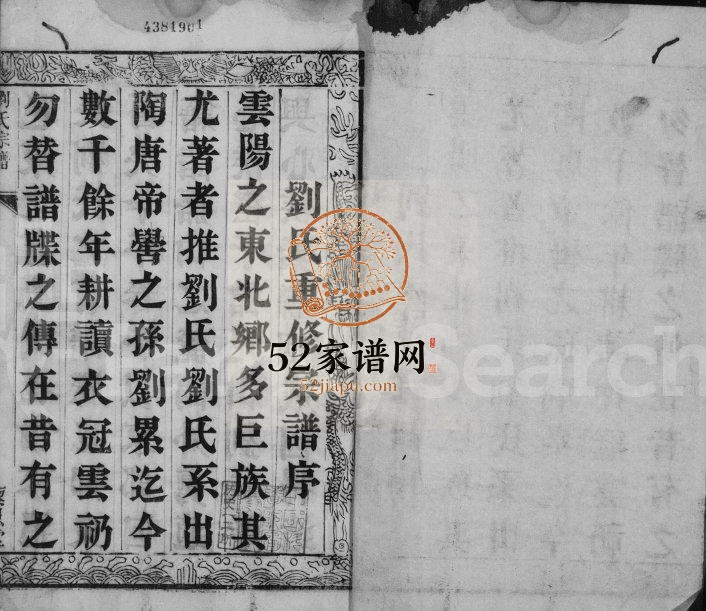 4381901
劉氏重修宗譜序
雲陽之東北鄉多巨族其
尤著者推劉氏劉氏系出
陶唐帝嚳之孫劉累迄今
數千餘年耕讀衣冠雲礽
勿替譜牒之傳在昔有之
劉氏宗譜
52家谱网
52jiapu.com
Search